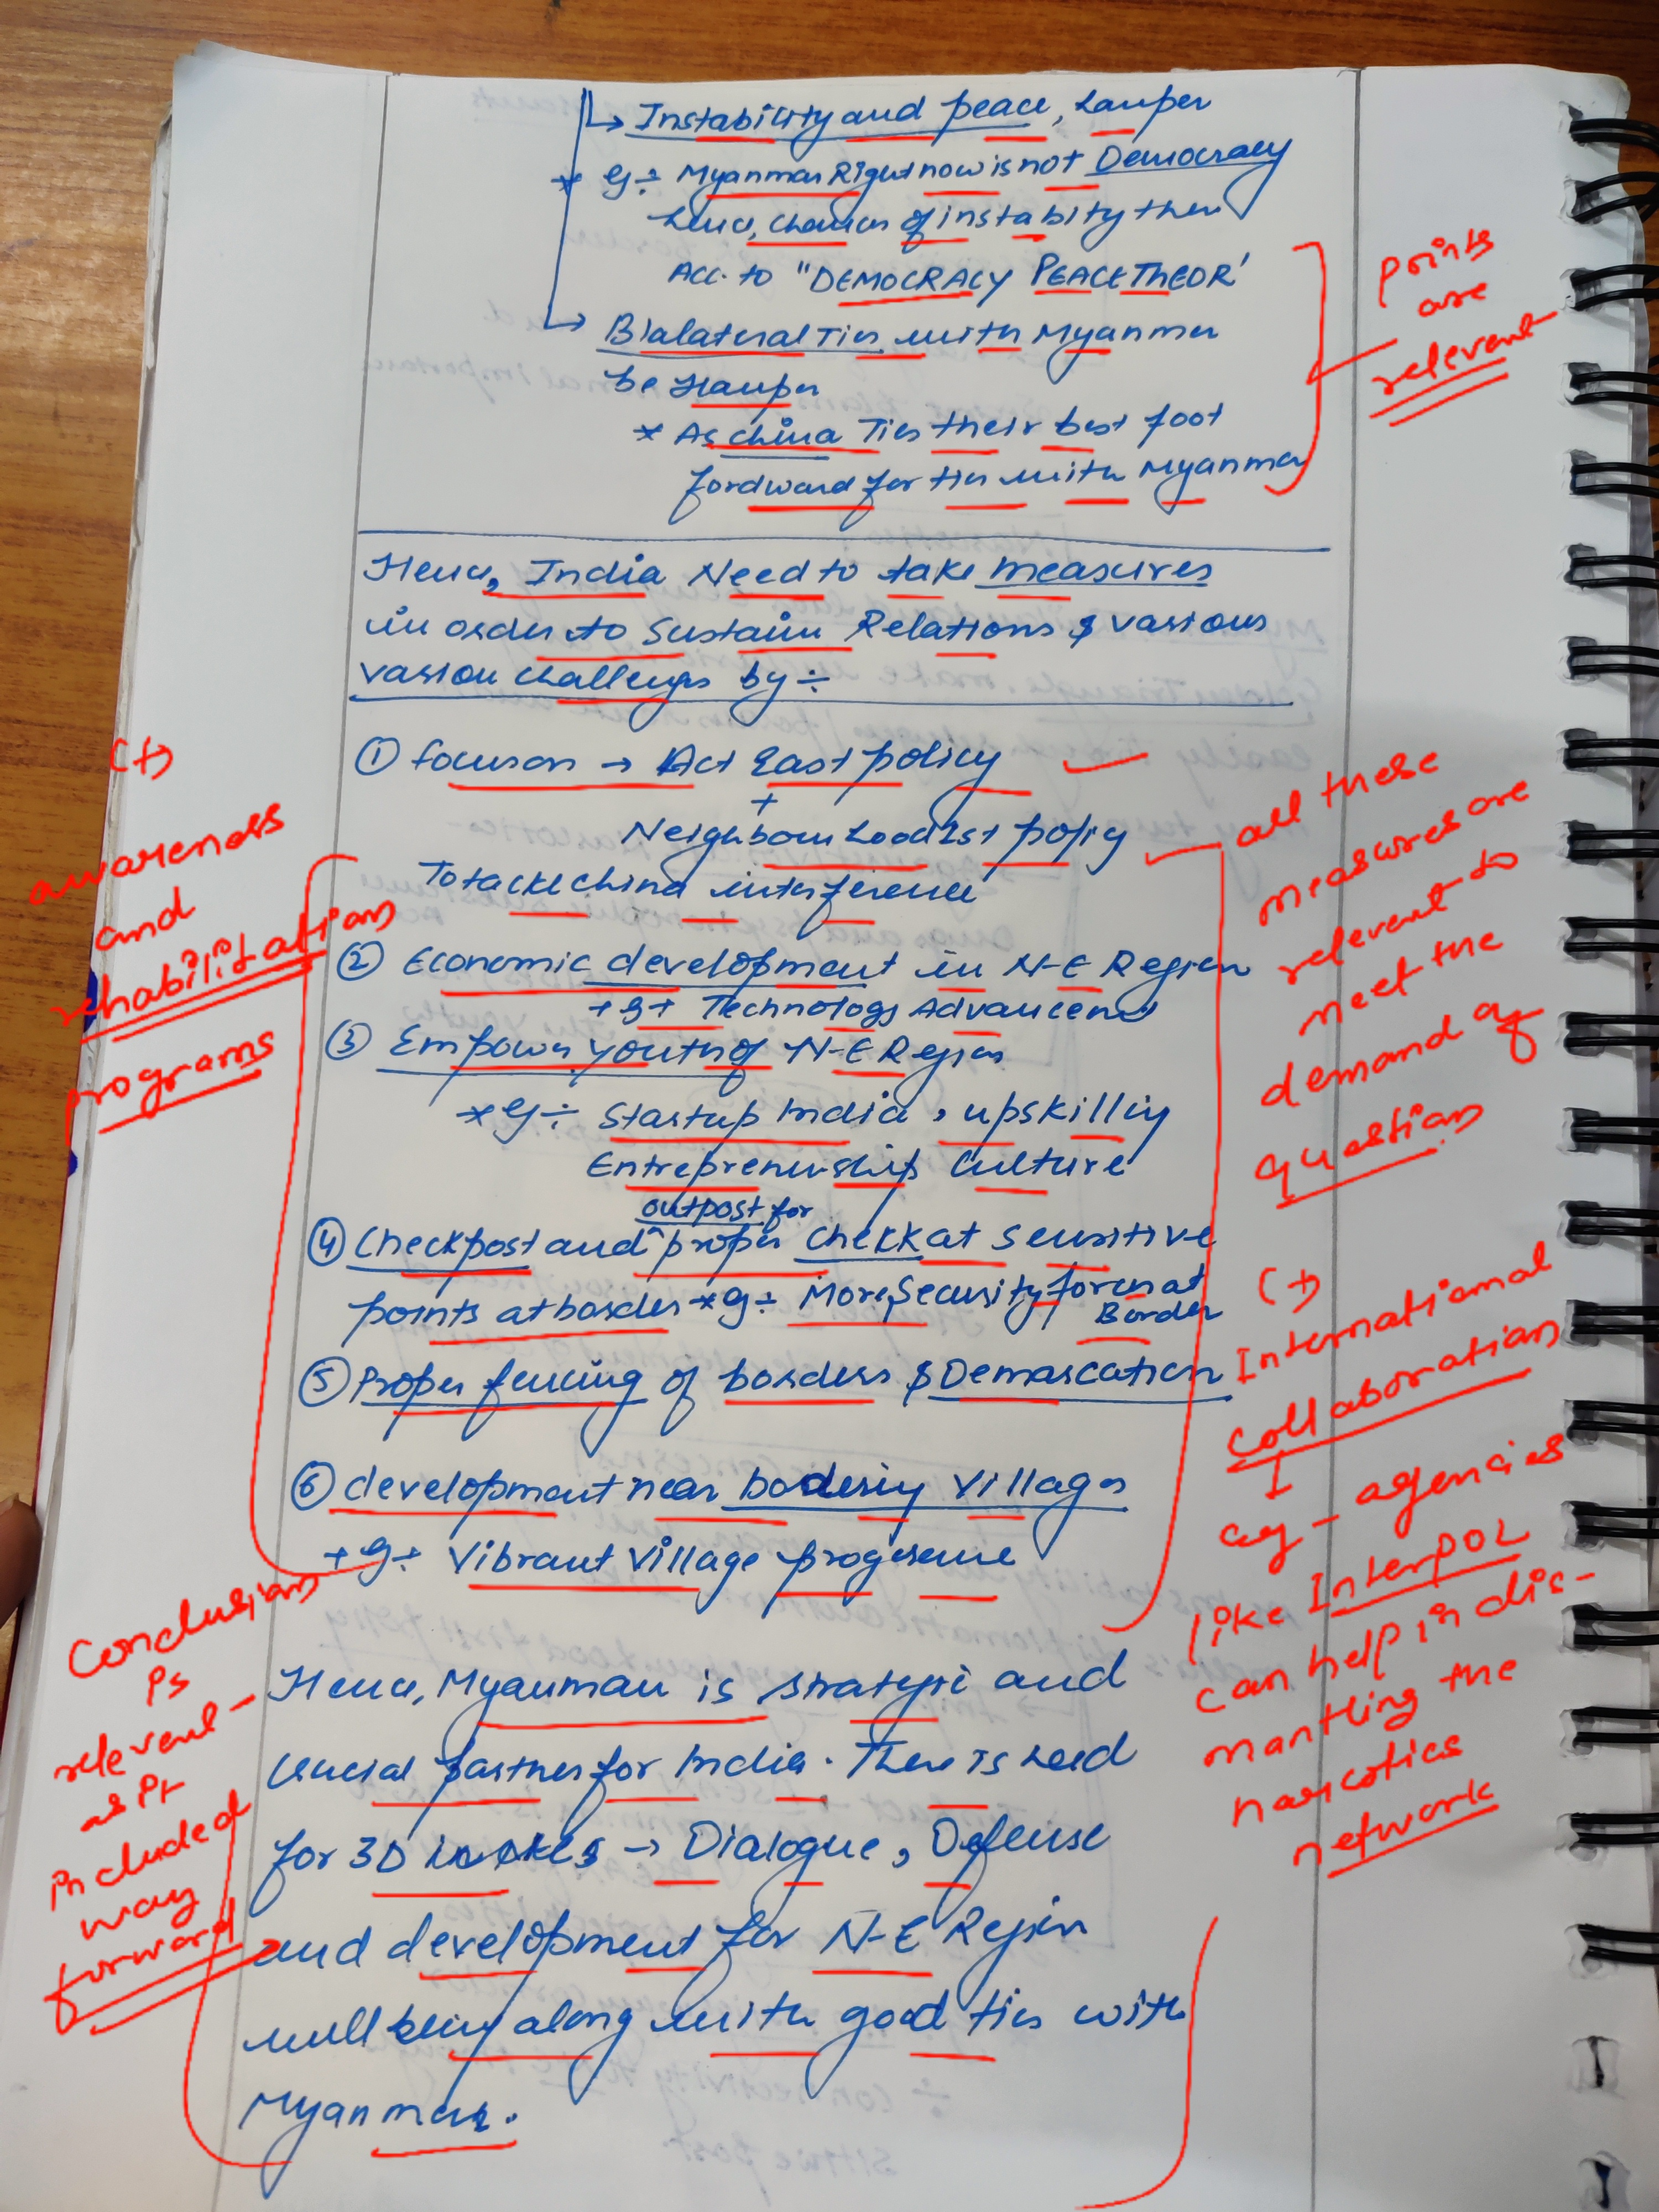 ↳ Instability and peace, hamper
* eg ÷ Myanmar Right now is not Democracy
hence, chances of instability there
Acc. to "DEMOCRACY PEACE THEOR'
↳ Bialateral Ties with Myanmar
be Hamper
* As china Ties their best foot
fordward for ties with Myanmar
points
are
relevent
Hence, India Need to take measures
in order to Sustain Relations & various
various challenges by ÷
① focus on → Act East policy
+
Neighbourhood 1st policy
To tackle china interference
② Economic development in N-E Region
* eg + Technology Advancement
③ Empower youths of N-E Region
* eg ÷ Startup India, upskilling
Entreprenurship Culture
outpost for
④ Checkpost and ^ proper chekk at sensitive
points at border * eg ÷ More Security forces at
Border
⑤ Proper fencing of borders & Demarcation
⑥ development near bordering Villages
* eg ÷ Vibrant Village programme
Hence, Myanmar is strategic and
crucial partner for India. There is need
for 3D → Dialogue, Defense
and development for N-E Region
well being along with good ties with
Myanmar.
(+)
awareness
and
rehabilitation
programs
all these
measures are
relevent to
meet the
demand of
question
(+)
International
collaboration
eg - agencies
like InterPOL
can help in dis-
mantling the
narcotics
network
Conclusion
is
relevent
as it
included
way
forward